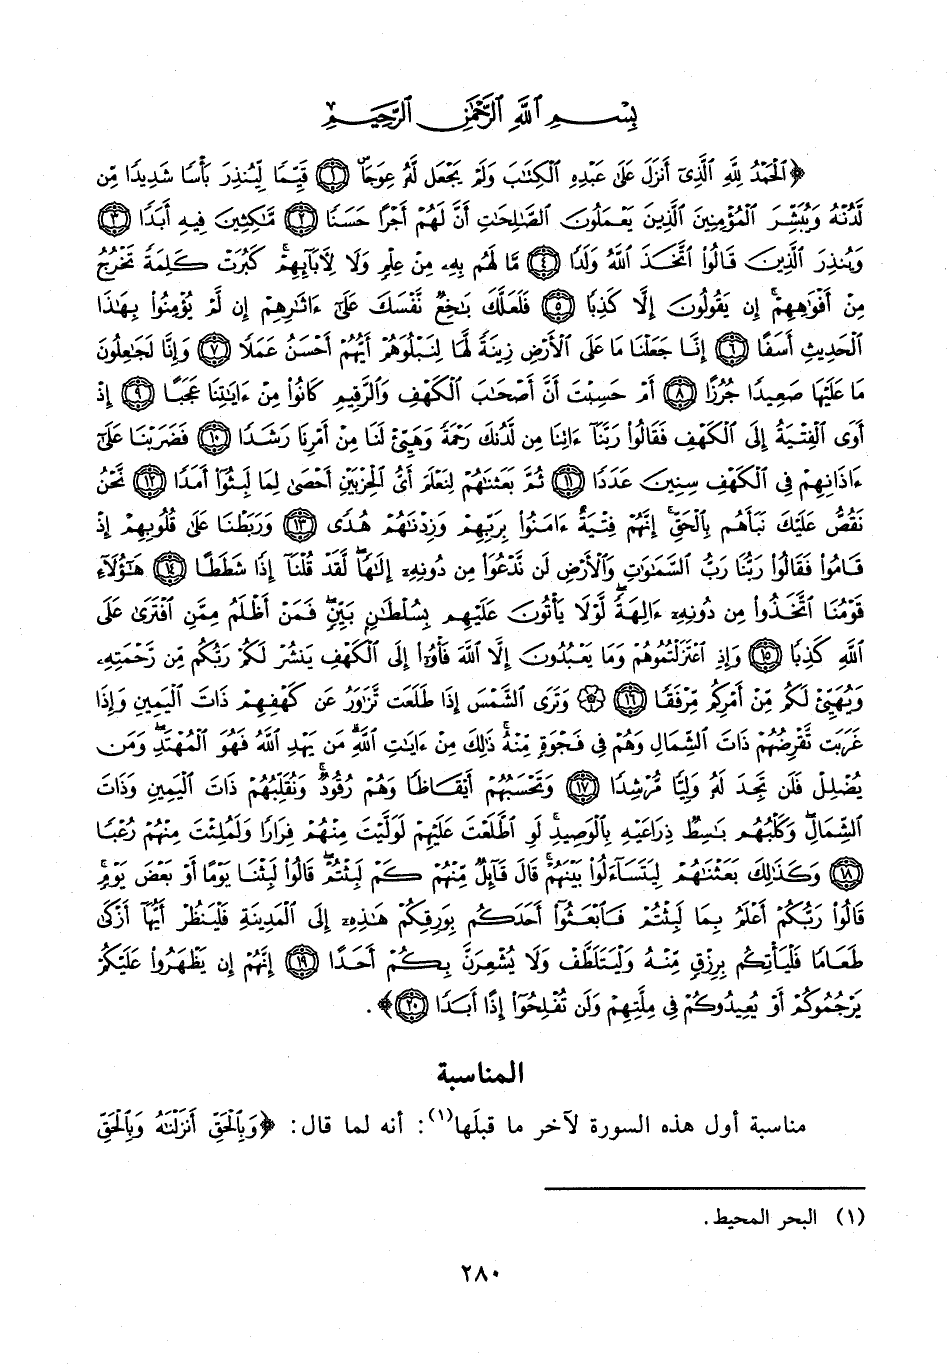 بِسْمِ ٱللَّهِ ٱلرَّحْمَٰنِ ٱلرَّحِيمِ
﴿ٱلْحَمْدُ لِلَّهِ ٱلَّذِىٓ أَنزَلَ عَلَىٰ عَبْدِهِ ٱلْكِتَٰبَ وَلَمْ يَجْعَل لَّهُۥ عِوَجَاۜ ۝١ قَيِّمًا لِّيُنذِرَ بَأْسًا شَدِيدًا مِّن
لَّدُنْهُ وَيُبَشِّرَ ٱلْمُؤْمِنِينَ ٱلَّذِينَ يَعْمَلُونَ ٱلصَّٰلِحَٰتِ أَنَّ لَهُمْ أَجْرًا حَسَنًا ۝٢ مَّٰكِثِينَ فِيهِ أَبَدًا ۝٣
وَيُنذِرَ ٱلَّذِينَ قَالُوا۟ ٱتَّخَذَ ٱللَّهُ وَلَدًا ۝٤ مَّا لَهُم بِهِۦ مِنْ عِلْمٍ وَلَا لِـَٔابَآئِهِمْ ۚ كَبُرَتْ كَلِمَةً تَخْرُجُ
مِنْ أَفْوَٰهِهِمْ ۚ إِن يَقُولُونَ إِلَّا كَذِبًا ۝٥ فَلَعَلَّكَ بَٰخِعٌ نَّفْسَكَ عَلَىٰٓ ءَاثَٰرِهِمْ إِن لَّمْ يُؤْمِنُوا۟ بِهَٰذَا
ٱلْحَدِيثِ أَسَفًا ۝٦ إِنَّا جَعَلْنَا مَا عَلَى ٱلْأَرْضِ زِينَةً لَّهَا لِنَبْلُوَهُمْ أَيُّهُمْ أَحْسَنُ عَمَلًا ۝٧ وَإِنَّا لَجَٰعِلُونَ
مَا عَلَيْهَا صَعِيدًا جُرُزًا ۝٨ أَمْ حَسِبْتَ أَنَّ أَصْحَٰبَ ٱلْكَهْفِ وَٱلرَّقِيمِ كَانُوا۟ مِنْ ءَايَٰتِنَا عَجَبًا ۝٩ إِذْ
أَوَى ٱلْفِتْيَةُ إِلَى ٱلْكَهْفِ فَقَالُوا۟ رَبَّنَآ ءَاتِنَا مِن لَّدُنكَ رَحْمَةً وَهَيِّئْ لَنَا مِنْ أَمْرِنَا رَشَدًا ۝١٠ فَضَرَبْنَا عَلَىٰٓ
ءَاذَانِهِمْ فِى ٱلْكَهْفِ سِنِينَ عَدَدًا ۝١١ ثُمَّ بَعَثْنَٰهُمْ لِنَعْلَمَ أَىُّ ٱلْحِزْبَيْنِ أَحْصَىٰ لِمَا لَبِثُوٓا۟ أَمَدًا ۝١٢ نَّحْنُ
نَقُصُّ عَلَيْكَ نَبَأَهُم بِٱلْحَقِّ ۚ إِنَّهُمْ فِتْيَةٌ ءَامَنُوا۟ بِرَبِّهِمْ وَزِدْنَٰهُمْ هُدًى ۝١٣ وَرَبَطْنَا عَلَىٰ قُلُوبِهِمْ إِذْ
قَامُوا۟ فَقَالُوا۟ رَبُّنَا رَبُّ ٱلسَّمَٰوَٰتِ وَٱلْأَرْضِ لَن نَّدْعُوَا۟ مِن دُونِهِۦٓ إِلَٰهًا ۖ لَّقَدْ قُلْنَآ إِذًا شَطَطًا ۝١٤ هَٰٓؤُلَآءِ
قَوْمُنَا ٱتَّخَذُوا۟ مِن دُونِهِۦٓ ءَالِهَةً ۖ لَّوْلَا يَأْتُونَ عَلَيْهِم بِسُلْطَٰنٍۭ بَيِّنٍ ۖ فَمَنْ أَظْلَمُ مِمَّنِ ٱفْتَرَىٰ عَلَى
ٱللَّهِ كَذِبًا ۝١٥ وَإِذِ ٱعْتَزَلْتُمُوهُمْ وَمَا يَعْبُدُونَ إِلَّا ٱللَّهَ فَأْوُۥٓا۟ إِلَى ٱلْكَهْفِ يَنشُرْ لَكُمْ رَبُّكُم مِّن رَّحْمَتِهِۦ
وَيُهَيِّئْ لَكُم مِّنْ أَمْرِكُم مِّرْفَقًا ۝١٦ ۞ وَتَرَى ٱلشَّمْسَ إِذَا طَلَعَت تَّزَٰوَرُ عَن كَهْفِهِمْ ذَاتَ ٱلْيَمِينِ وَإِذَا
غَرَبَت تَّقْرِضُهُمْ ذَاتَ ٱلشِّمَالِ وَهُمْ فِى فَجْوَةٍ مِّنْهُ ۚ ذَٰلِكَ مِنْ ءَايَٰتِ ٱللَّهِ ۗ مَن يَهْدِ ٱللَّهُ فَهُوَ ٱلْمُهْتَدِ ۖ وَمَن
يُضْلِلْ فَلَن تَجِدَ لَهُۥ وَلِيًّا مُّرْشِدًا ۝١٧ وَتَحْسَبُهُمْ أَيْقَاظًا وَهُمْ رُقُودٌ ۚ وَنُقَلِّبُهُمْ ذَاتَ ٱلْيَمِينِ وَذَاتَ
ٱلشِّمَالِ ۖ وَكَلْبُهُم بَٰسِطٌ ذِرَاعَيْهِ بِٱلْوَصِيدِ ۚ لَوِ ٱطَّلَعْتَ عَلَيْهِمْ لَوَلَّيْتَ مِنْهُمْ فِرَارًا وَلَمُلِئْتَ مِنْهُمْ رُعْبًا
۝١٨ وَكَذَٰلِكَ بَعَثْنَٰهُمْ لِيَتَسَآءَلُوا۟ بَيْنَهُمْ ۚ قَالَ قَآئِلٌ مِّنْهُمْ كَمْ لَبِثْتُمْ ۖ قَالُوا۟ لَبِثْنَا يَوْمًا أَوْ بَعْضَ يَوْمٍ ۚ
قَالُوا۟ رَبُّكُمْ أَعْلَمُ بِمَا لَبِثْتُمْ فَٱبْعَثُوٓا۟ أَحَدَكُم بِوَرِقِكُمْ هَٰذِهِۦٓ إِلَى ٱلْمَدِينَةِ فَلْيَنظُرْ أَيُّهَآ أَزْكَىٰ
طَعَامًا فَلْيَأْتِكُم بِرِزْقٍ مِّنْهُ وَلْيَتَلَطَّفْ وَلَا يُشْعِرَنَّ بِكُمْ أَحَدًا ۝١٩ إِنَّهُمْ إِن يَظْهَرُوا۟ عَلَيْكُمْ
يَرْجُمُوكُمْ أَوْ يُعِيدُوكُمْ فِى مِلَّتِهِمْ وَلَن تُفْلِحُوٓا۟ إِذًا أَبَدًا ۝٢٠﴾.
المناسبة
مناسبة أول هذه السورة لآخر ما قبلَها(١): أنه لما قال: ﴿وَبِٱلْحَقِّ أَنزَلْنَٰهُ وَبِٱلْحَقِّ
(١) البحر المحيط.
٢٨٠